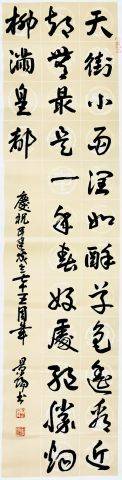 天街小雨潤如酥草色遙看近
却無最是一年春好處絕勝烟
柳滿皇都
慶祝成立十五周年
書